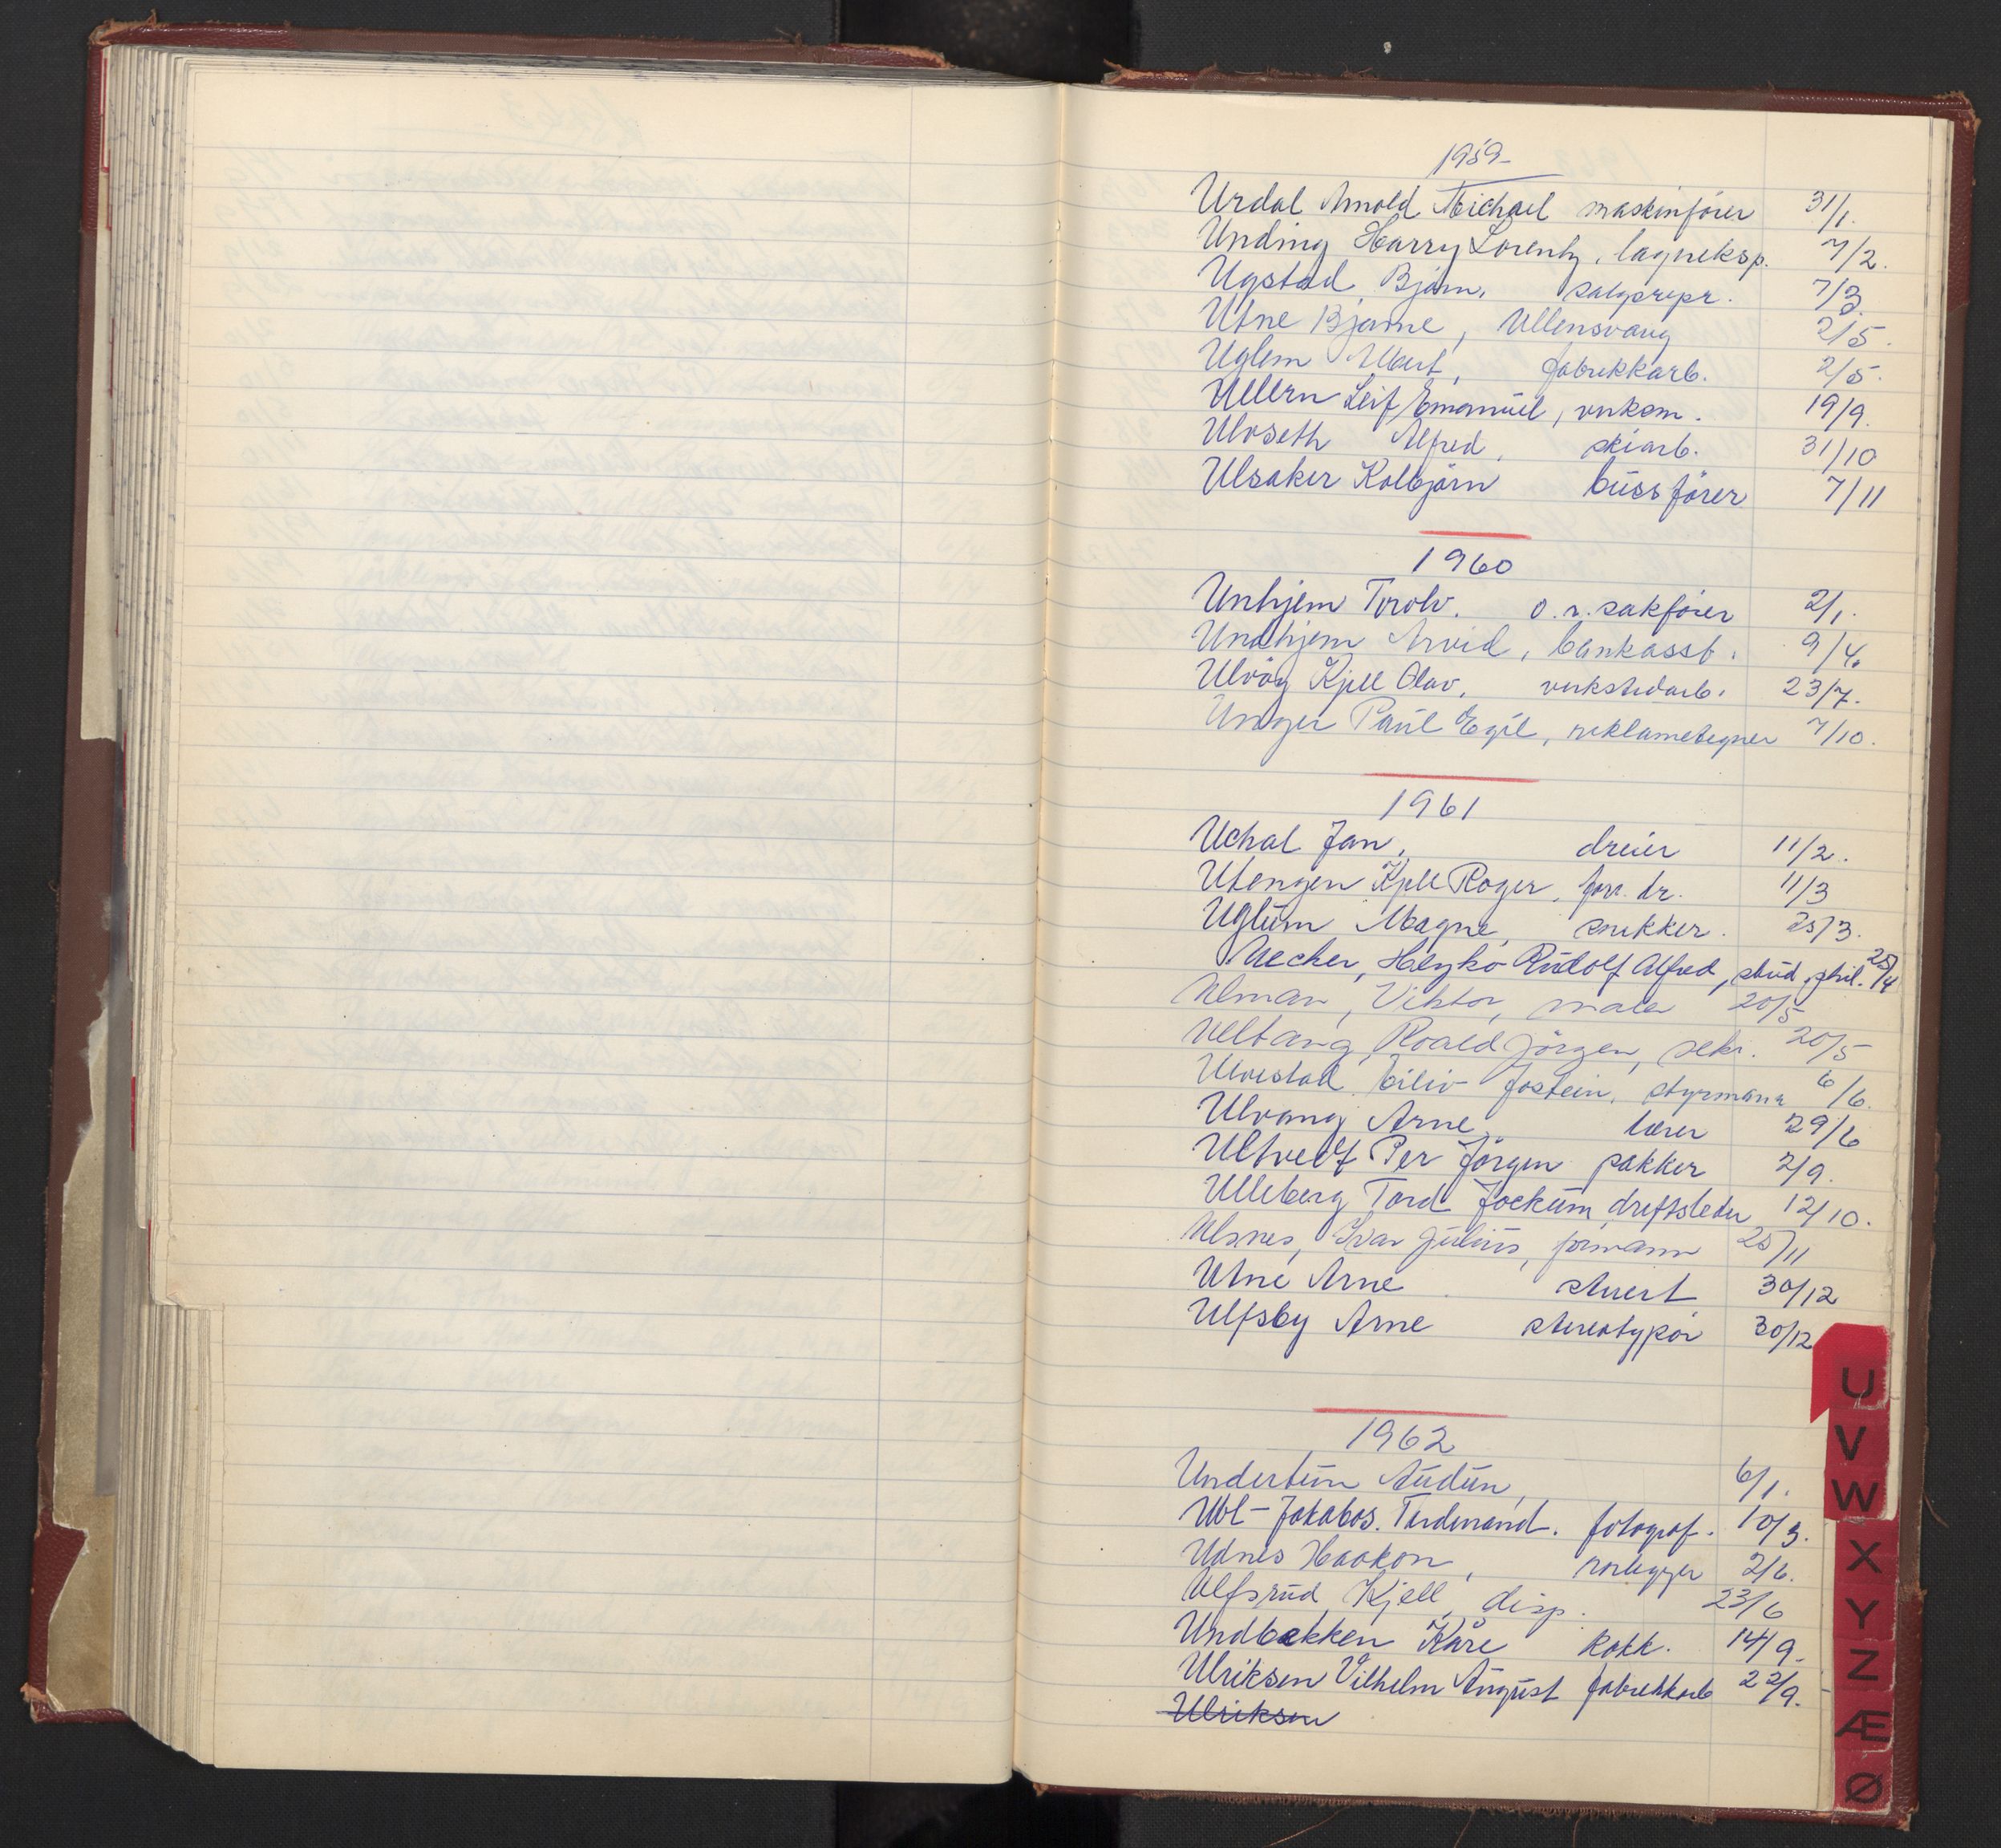 1959
Urdal Arnold Michael maskinfører 31/1.
Unding Harry Lorentz, lagereksp. 7/2.
Ugstad Bjørn, salgsrepr. 7/3
Utne Bjarne, Ullensvang 2/5.
Uglem Albert, fabrikkarb. 2/5.
Ullern Leif Emanuel, verksm. 19/9.
Ulvseth Alfred, skiarb. 31/10
Ulsaker Kolbjørn bussfører 7/11
1960
Unhjem Torolv. o.r.sakfører 2/1.
Undhjem Arvid, bankasst. 9/4.
Ulvøy Kjell Olav, verkstedarb. 23/7.
Unger Paul Egil, reklametegner 7/10.
1961
Uchal Jan, dreier 11/2.
Utengen Kjell Roger, forr. dr. 11/3
Uglum Magne, snekker. 25/3.
Uecker, Heyko Rudolf Alfred, stud. phil. 25/4
Ulman, Viktor, maler 20/5
Ueltang, Roald Jørgen, sekr. 20/5
Ulvestad Eiliv Jostein, styrmann 6/6.
Ulvang Arne, lærer 29/6
Ultvedt Per Jørgen pakker 2/9.
Ulleberg Tord Jockum, driftsleder 12/10.
Ulsnes, Ivar Julius, formann 25/11
Utne Arne stuert 30/12
Ulfsby Arne stereotypør 30/12
1962
Undertun Audun, 6/1.
Ubl-Jakabos. Ferdinand. fotograf. 10/3.
Udnes Haakon, rørlegger 2/6.
Ulfsrud Kjell, disp. 23/6
Undbekken Kåre kokk. 14/9.
Ulriksen Vilhelm August fabrikkarb 22/9.
Ulriksen
U
V
W
X
Y
Z
Æ
Ø